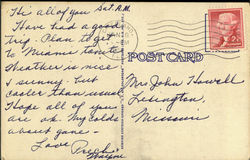 Hi all of you Sat A.M.
Have had a good
trip. Plan to get
to Miami tonite
Weather is nice
& sunny. but
cooler than usual
Hope all of you
are o.k. My colds
about gone -
Love
Wayne
POST CARD
Mrs John Howell
Lexington,
Missouri